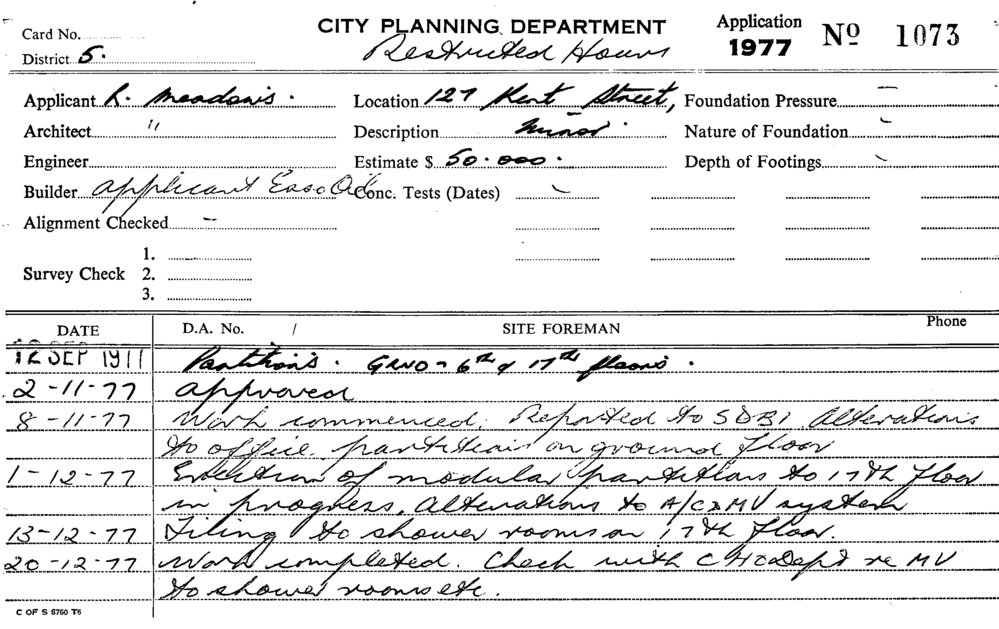 Card No.
CITY PLANNING DEPARTMENT
Application
1977
Nº 1073
District 5.
Restricted Hours
Applicant R. Meadows. Location 127 Kent Street, Foundation Pressure –
Architect " Description Minor. Nature of Foundation
Engineer Estimate $ 50.000. Depth of Footings
Builder Applicant Esso Oil Conc. Tests (Dates)
Alignment Checked –
1.
Survey Check 2.
3.
DATE D.A. No. / SITE FOREMAN Phone
12 SEP 1977 Partitions. GRND – 6th & 17th floors.
2-11-77 Approved
8-11-77 Work commenced. Reported to SDBI. Alterations
to office partitions on ground floor
1-12-77 Erection of modular partitions to 17th floor
in progress. Alterations to A/C & MV system
13-12-77 Tiling to shower rooms on 17th floor.
20-12-77 Work completed. Check with Dept re MV
to shower rooms etc.
C OF S 6760 T6